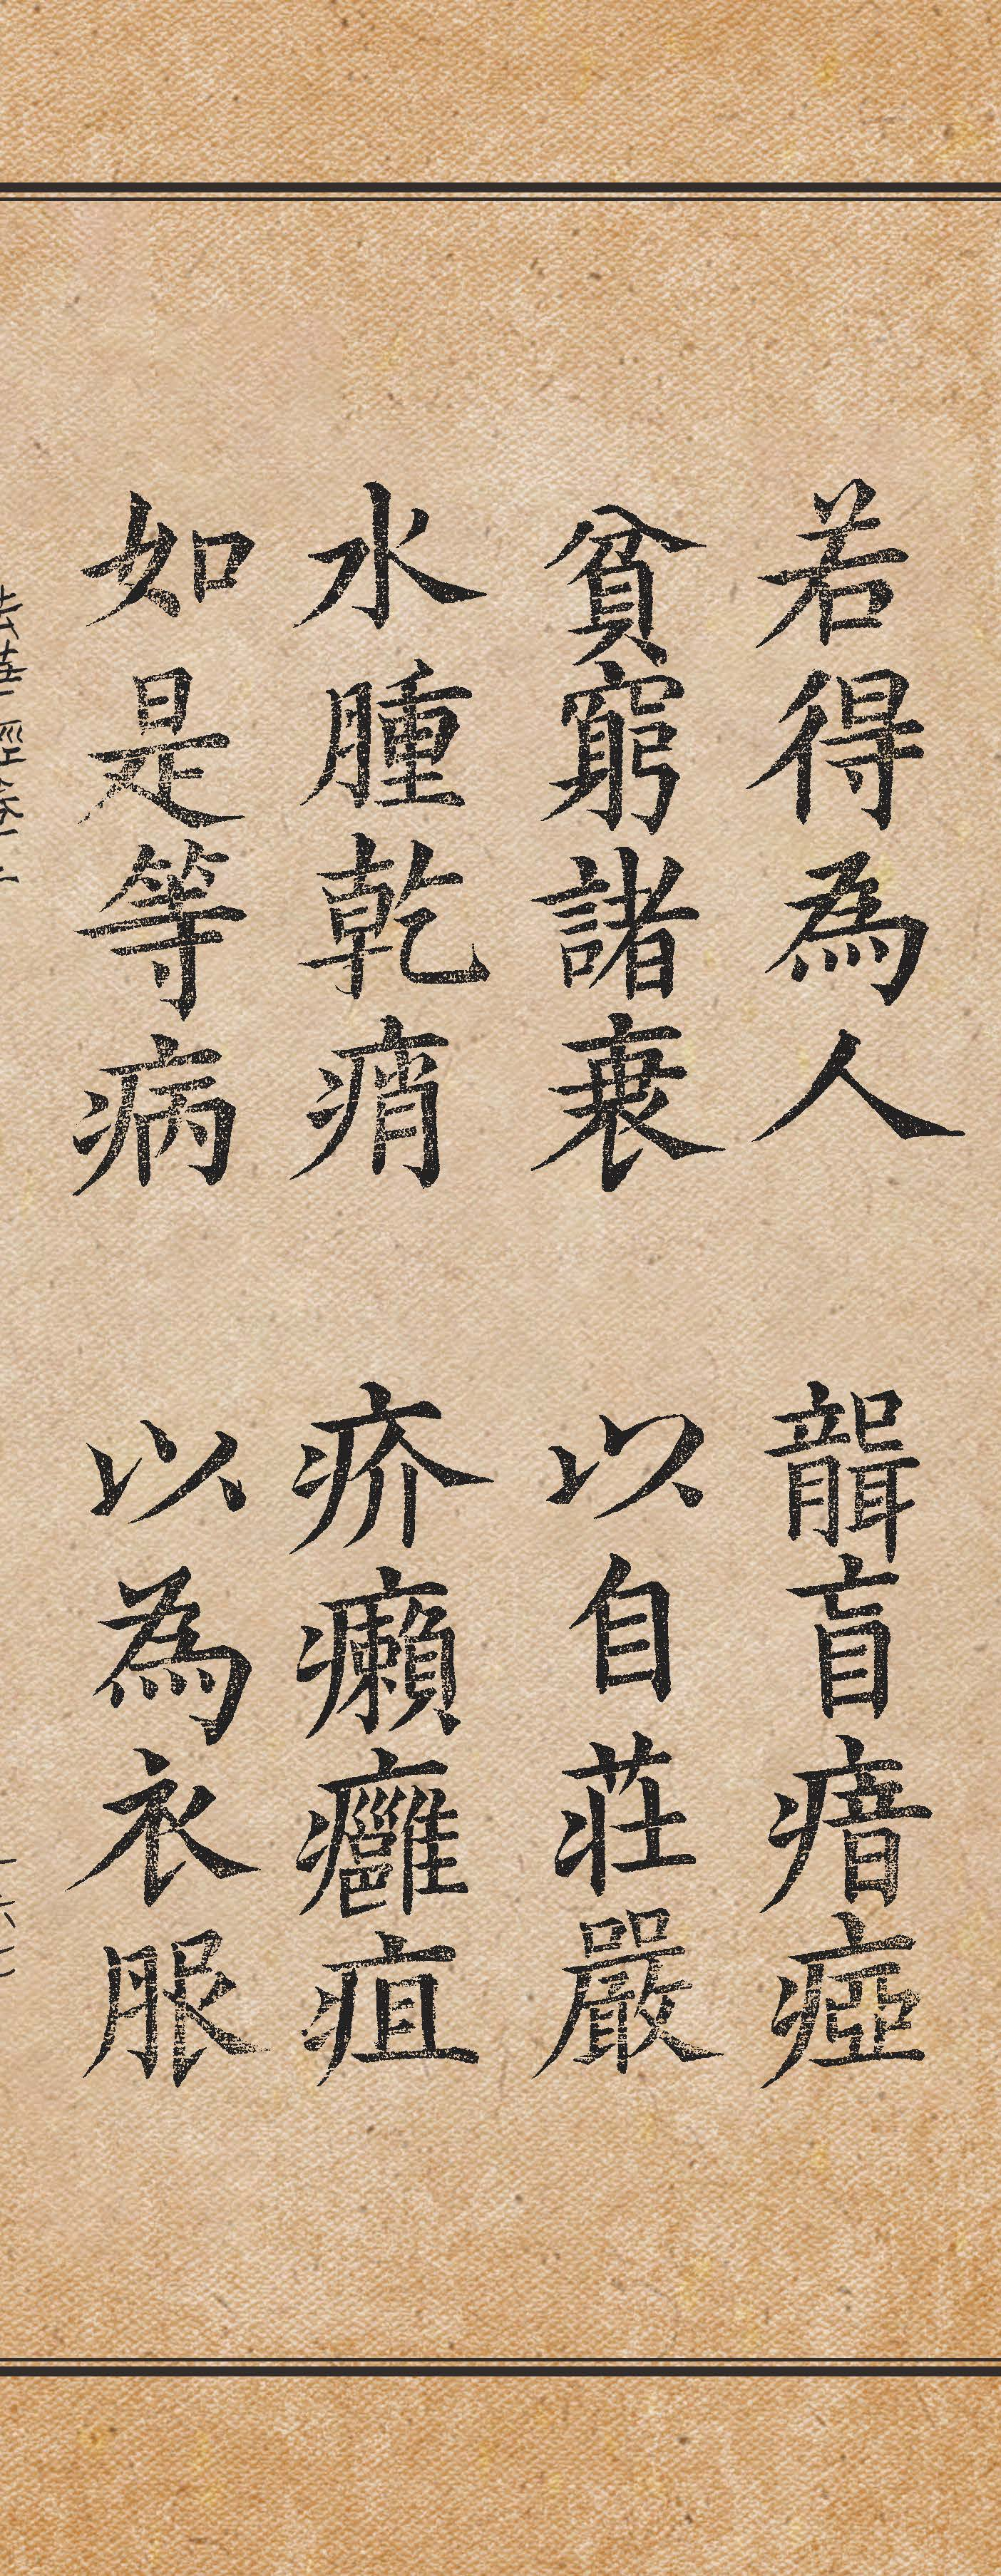 若得為人　聾盲瘖瘂
貧窮諸衰　以自莊嚴
水腫乾痟　疥癩癰疽
如是等病　以為衣服